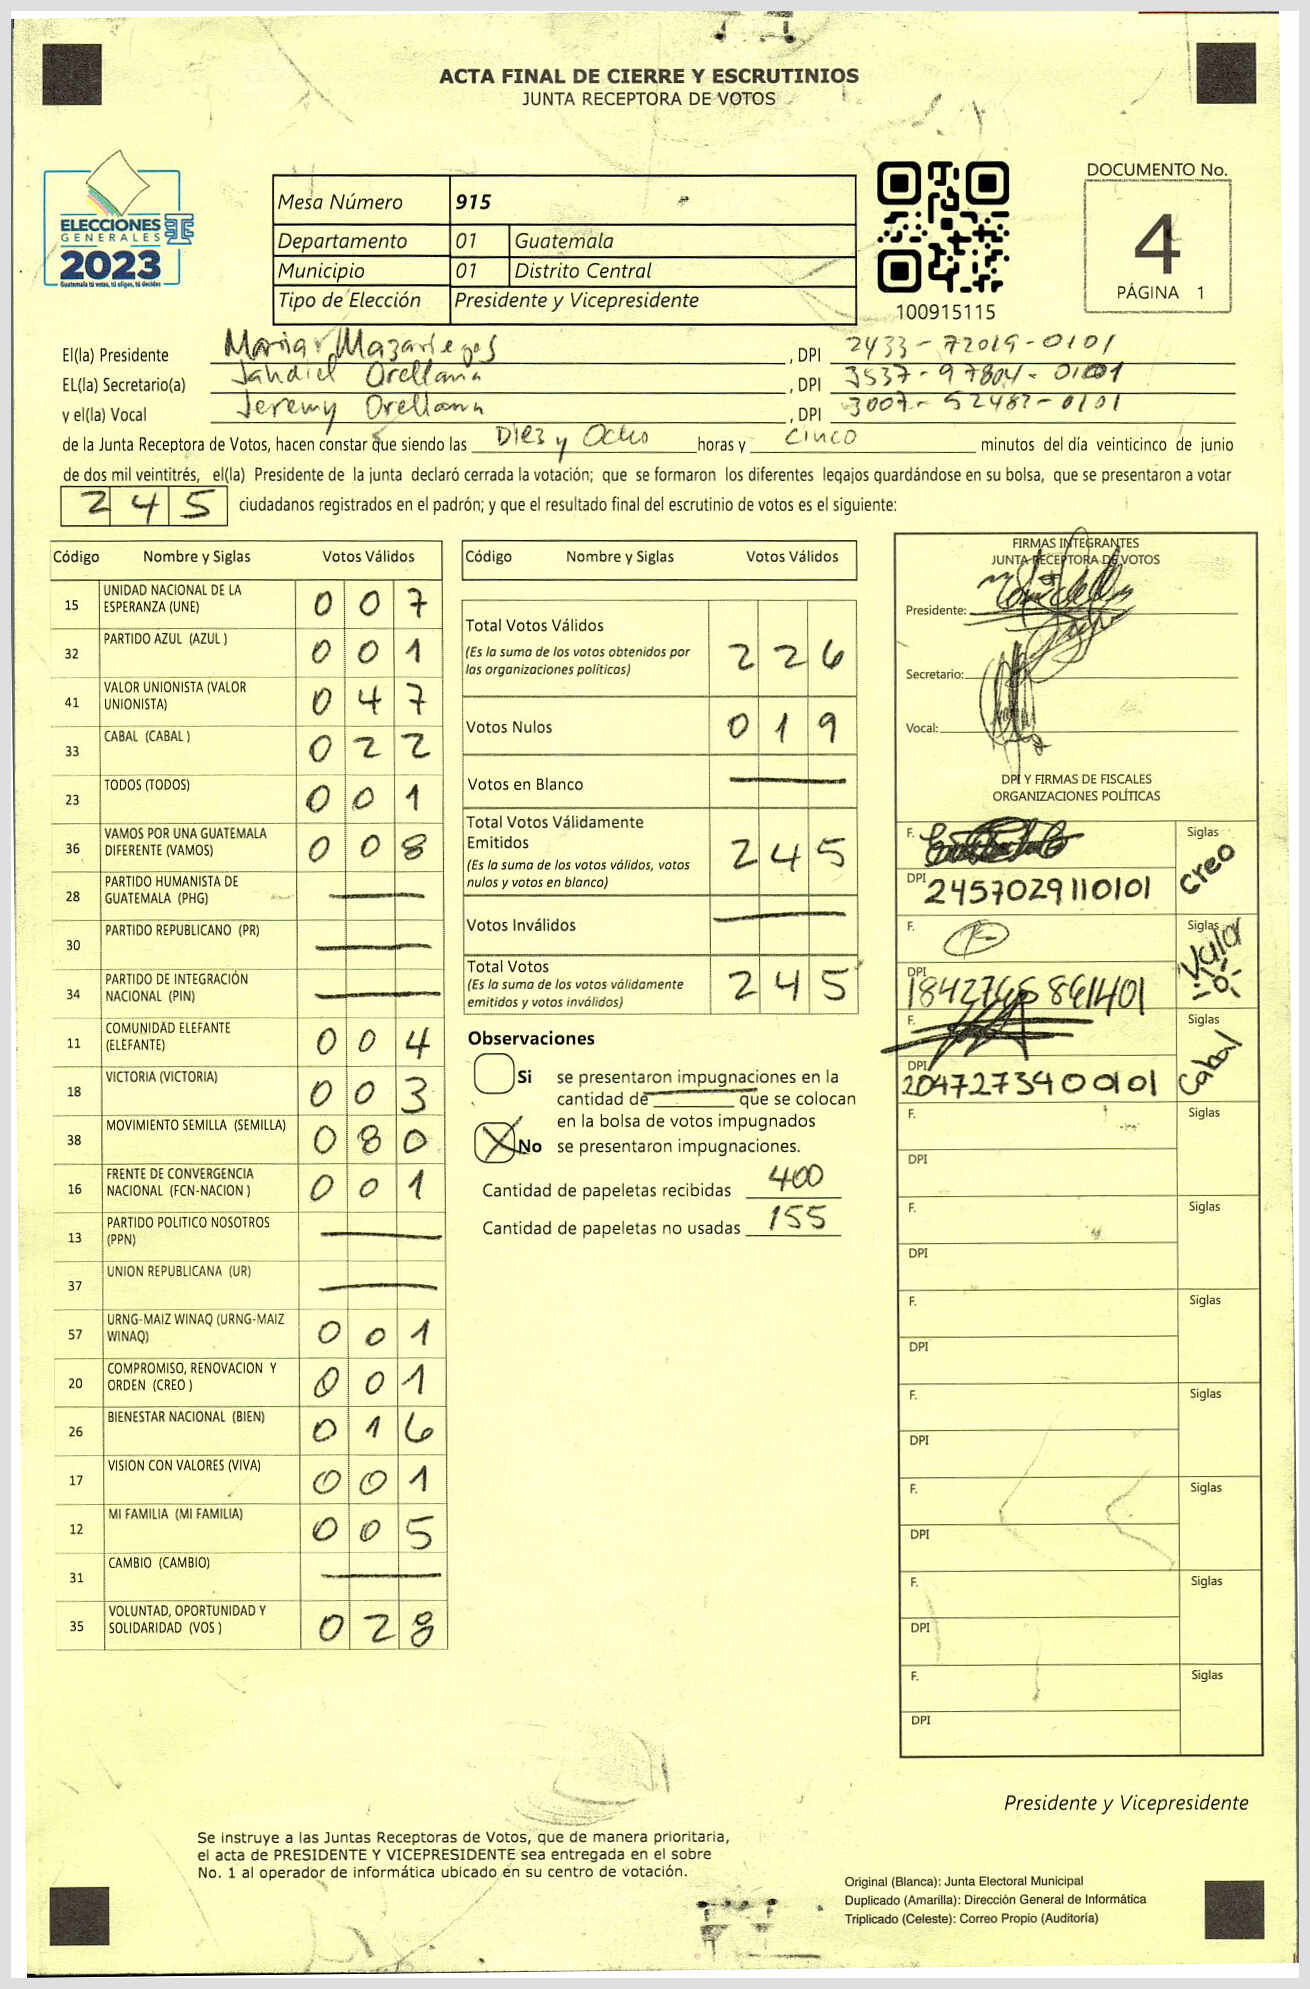 ACTA FINAL DE CIERRE Y ESCRUTINIOS
JUNTA RECEPTORA DE VOTOS
ELECCIONES
GENERALES
2023
Guatemala tú votas, tú eliges, tú decides
Mesa Número 915
Departamento 01 Guatemala
Municipio 01 Distrito Central
Tipo de Elección Presidente y Vicepresidente
100915115
DOCUMENTO No.
4
PÁGINA 1
El(la) Presidente Mazariegos , DPI 2433-72019-0101
EL(la) Secretario(a) Jahdiel Orellana , DPI 3537-97804-0101
y el(la) Vocal Jeremy Orellana , DPI 3007-52482-0101
de la Junta Receptora de Votos, hacen constar que siendo las Diez y Ocho horas y cinco minutos del día veinticinco de junio
de dos mil veintitrés, el(la) Presidente de la junta declaró cerrada la votación; que se formaron los diferentes legajos guardándose en su bolsa, que se presentaron a votar
245 ciudadanos registrados en el padrón; y que el resultado final del escrutinio de votos es el siguiente:
Código Nombre y Siglas Votos Válidos
15 UNIDAD NACIONAL DE LA ESPERANZA (UNE) 007
32 PARTIDO AZUL (AZUL ) 001
41 VALOR UNIONISTA (VALOR UNIONISTA) 047
33 CABAL (CABAL ) 022
23 TODOS (TODOS) 001
36 VAMOS POR UNA GUATEMALA DIFERENTE (VAMOS) 008
28 PARTIDO HUMANISTA DE GUATEMALA (PHG) —
30 PARTIDO REPUBLICANO (PR) —
34 PARTIDO DE INTEGRACIÓN NACIONAL (PIN) —
11 COMUNIDAD ELEFANTE (ELEFANTE) 004
18 VICTORIA (VICTORIA) 003
38 MOVIMIENTO SEMILLA (SEMILLA) 080
16 FRENTE DE CONVERGENCIA NACIONAL (FCN-NACION ) 001
13 PARTIDO POLITICO NOSOTROS (PPN) —
37 UNION REPUBLICANA (UR) —
57 URNG-MAIZ WINAQ (URNG-MAIZ WINAQ) 001
20 COMPROMISO, RENOVACION Y ORDEN (CREO ) 001
26 BIENESTAR NACIONAL (BIEN) 016
17 VISION CON VALORES (VIVA) 001
12 MI FAMILIA (MI FAMILIA) 005
31 CAMBIO (CAMBIO) —
35 VOLUNTAD, OPORTUNIDAD Y SOLIDARIDAD (VOS ) 028
Código Nombre y Siglas Votos Válidos
Total Votos Válidos 226
(Es la suma de los votos obtenidos por
las organizaciones políticas)
Votos Nulos 019
Votos en Blanco —
Total Votos Válidamente
Emitidos 245
(Es la suma de los votos válidos, votos
nulos y votos en blanco)
Votos Inválidos —
Total Votos 245
(Es la suma de los votos válidamente
emitidos y votos inválidos)
Observaciones
Si se presentaron impugnaciones en la
cantidad de ____ que se colocan
en la bolsa de votos impugnados
X No se presentaron impugnaciones.
Cantidad de papeletas recibidas 400
Cantidad de papeletas no usadas 155
FIRMAS INTEGRANTES
JUNTA RECEPTORA DE VOTOS
Presidente:
Secretario:
Vocal:
DPI Y FIRMAS DE FISCALES
ORGANIZACIONES POLÍTICAS
F. Siglas Creo
DPI 2457029110101
F. Siglas Valor
DPI
F. Siglas Cabal
DPI 2047273400101
F. Siglas
DPI
F. Siglas
DPI
F. Siglas
DPI
F. Siglas
DPI
F. Siglas
DPI
F. Siglas
DPI
F. Siglas
DPI
Presidente y Vicepresidente
Se instruye a las Juntas Receptoras de Votos, que de manera prioritaria,
el acta de PRESIDENTE Y VICEPRESIDENTE sea entregada en el sobre
No. 1 al operador de informática ubicado en su centro de votación.
Original (Blanca): Junta Electoral Municipal
Duplicado (Amarilla): Dirección General de Informática
Triplicado (Celeste): Correo Propio (Auditoría)